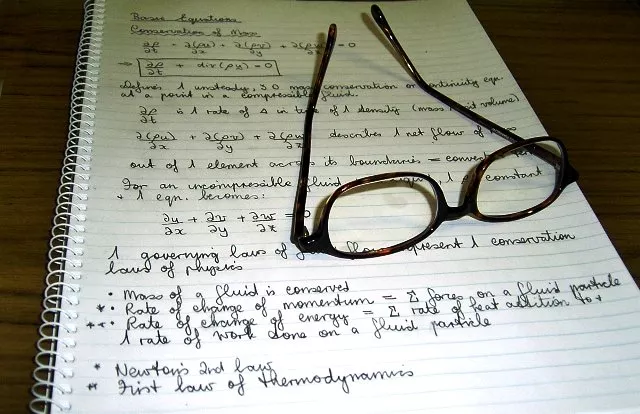 Basic Equations
Conservation of Mass
∂ρ/∂t + ∂(ρu)/∂x + ∂(ρv)/∂y + ∂(ρw)/∂z = 0
⇒ ∂ρ/∂t + div(ρu) = 0
Defines 1 unsteady, 3D mass conservation or continuity eqn.
at a point in a compressible fluid.
∂ρ/∂t is 1 rate of Δ in time of 1 density (mass volume)
∂(ρu)/∂x + ∂(ρv)/∂y + ∂(ρw) describes 1 net flow of
out of 1 element across its boundaries =
For an incompressible fluid 1 constant
+ 1 eqn. becomes:
∂u/∂x + ∂v/∂y + ∂w/∂z = 0
1 governing laws of flow represent 1 conservation
laws of physics
· Mass of a fluid is conserved
*· Rate of change of momentum = Σ forces on a fluid particle
**· Rate of change of energy = Σ rate of heat addition to +
1 rate of work done on a fluid particle
* Newtons 2nd law
** First law of thermodynamics